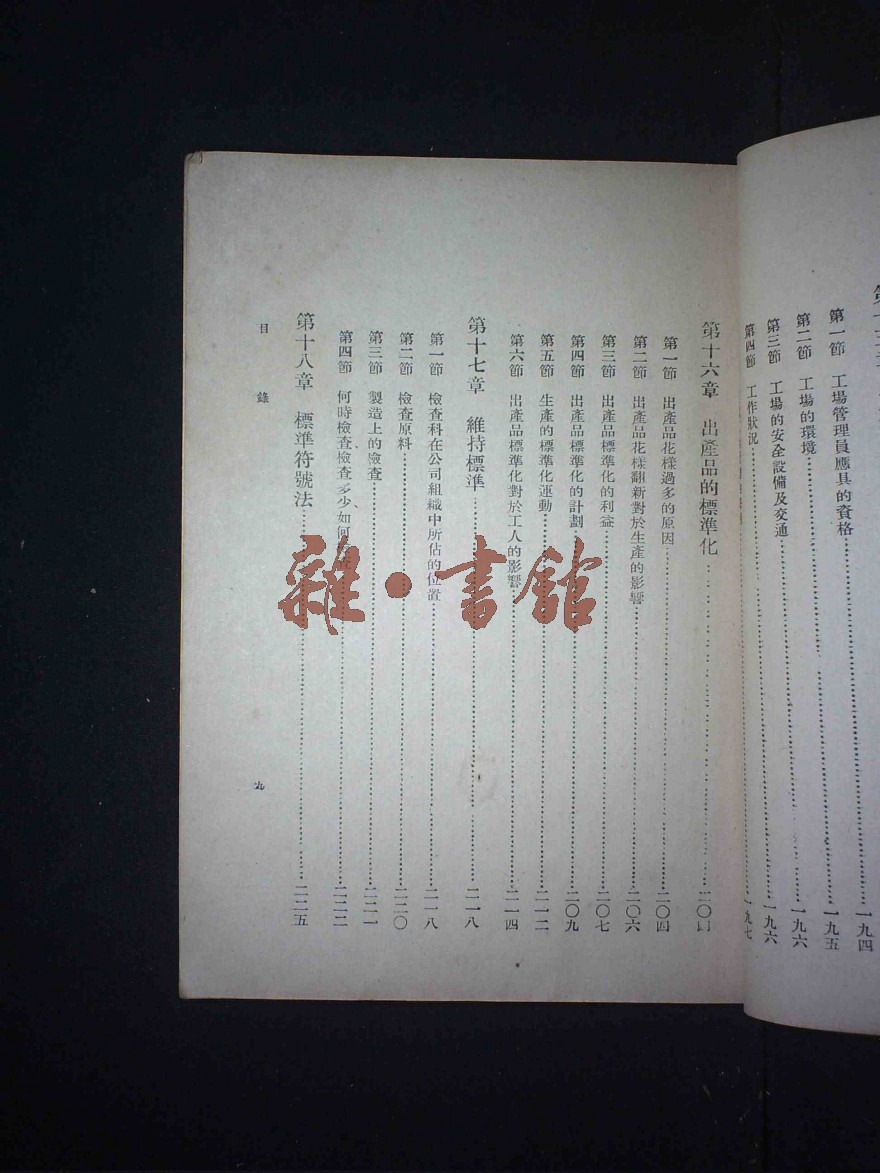 第一節　工場管理員應具的資格………一九五
第二節　工場的環境………一九六
第三節　工場的安全設備及交通………一九六
第四節　工作狀況………一九七
第十六章　出產品的標準化………二〇四
第一節　出產品花樣過多的原因………二〇四
第二節　出產品花樣翻新對於生產的影響………二〇六
第三節　出產品標準化的利益………二〇七
第四節　出產品標準化的計劃………二〇九
第五節　生產的標準化運動………二一二
第六節　出產品標準化對於工人的影響………二一四
第十七章　維持標準………二一八
第一節　檢查科在公司組織中所佔的位置………二一八
第二節　檢查原料………二二〇
第三節　製造上的檢查………二二一
第四節　何時檢查、檢查多少、如何………二二二
第十八章　標準符號法………二二五
目錄
九
雜·書館